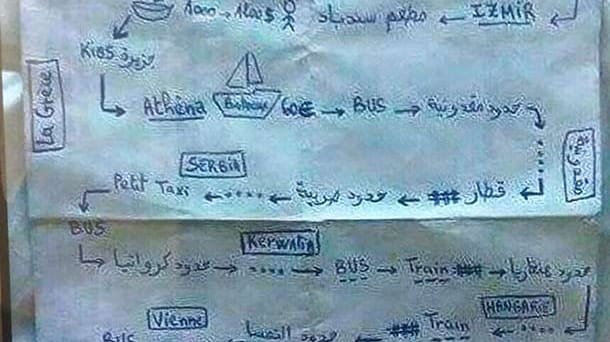 1000 → 1200$ مطعم سندباد ← IZMIR
جزيرة Kios
La Grèce
Athèna Bateau 60€ → BUS → حدود مقدونية
مقدونية
SERBIA
Petit Taxi ← حدود صربية ← قطار
BUS
KERWATIA
حدود كرواتيا → BUS → Train → حدود هنغاريا
Vienne HONGARIE
BUS حدود النمسا ← Train